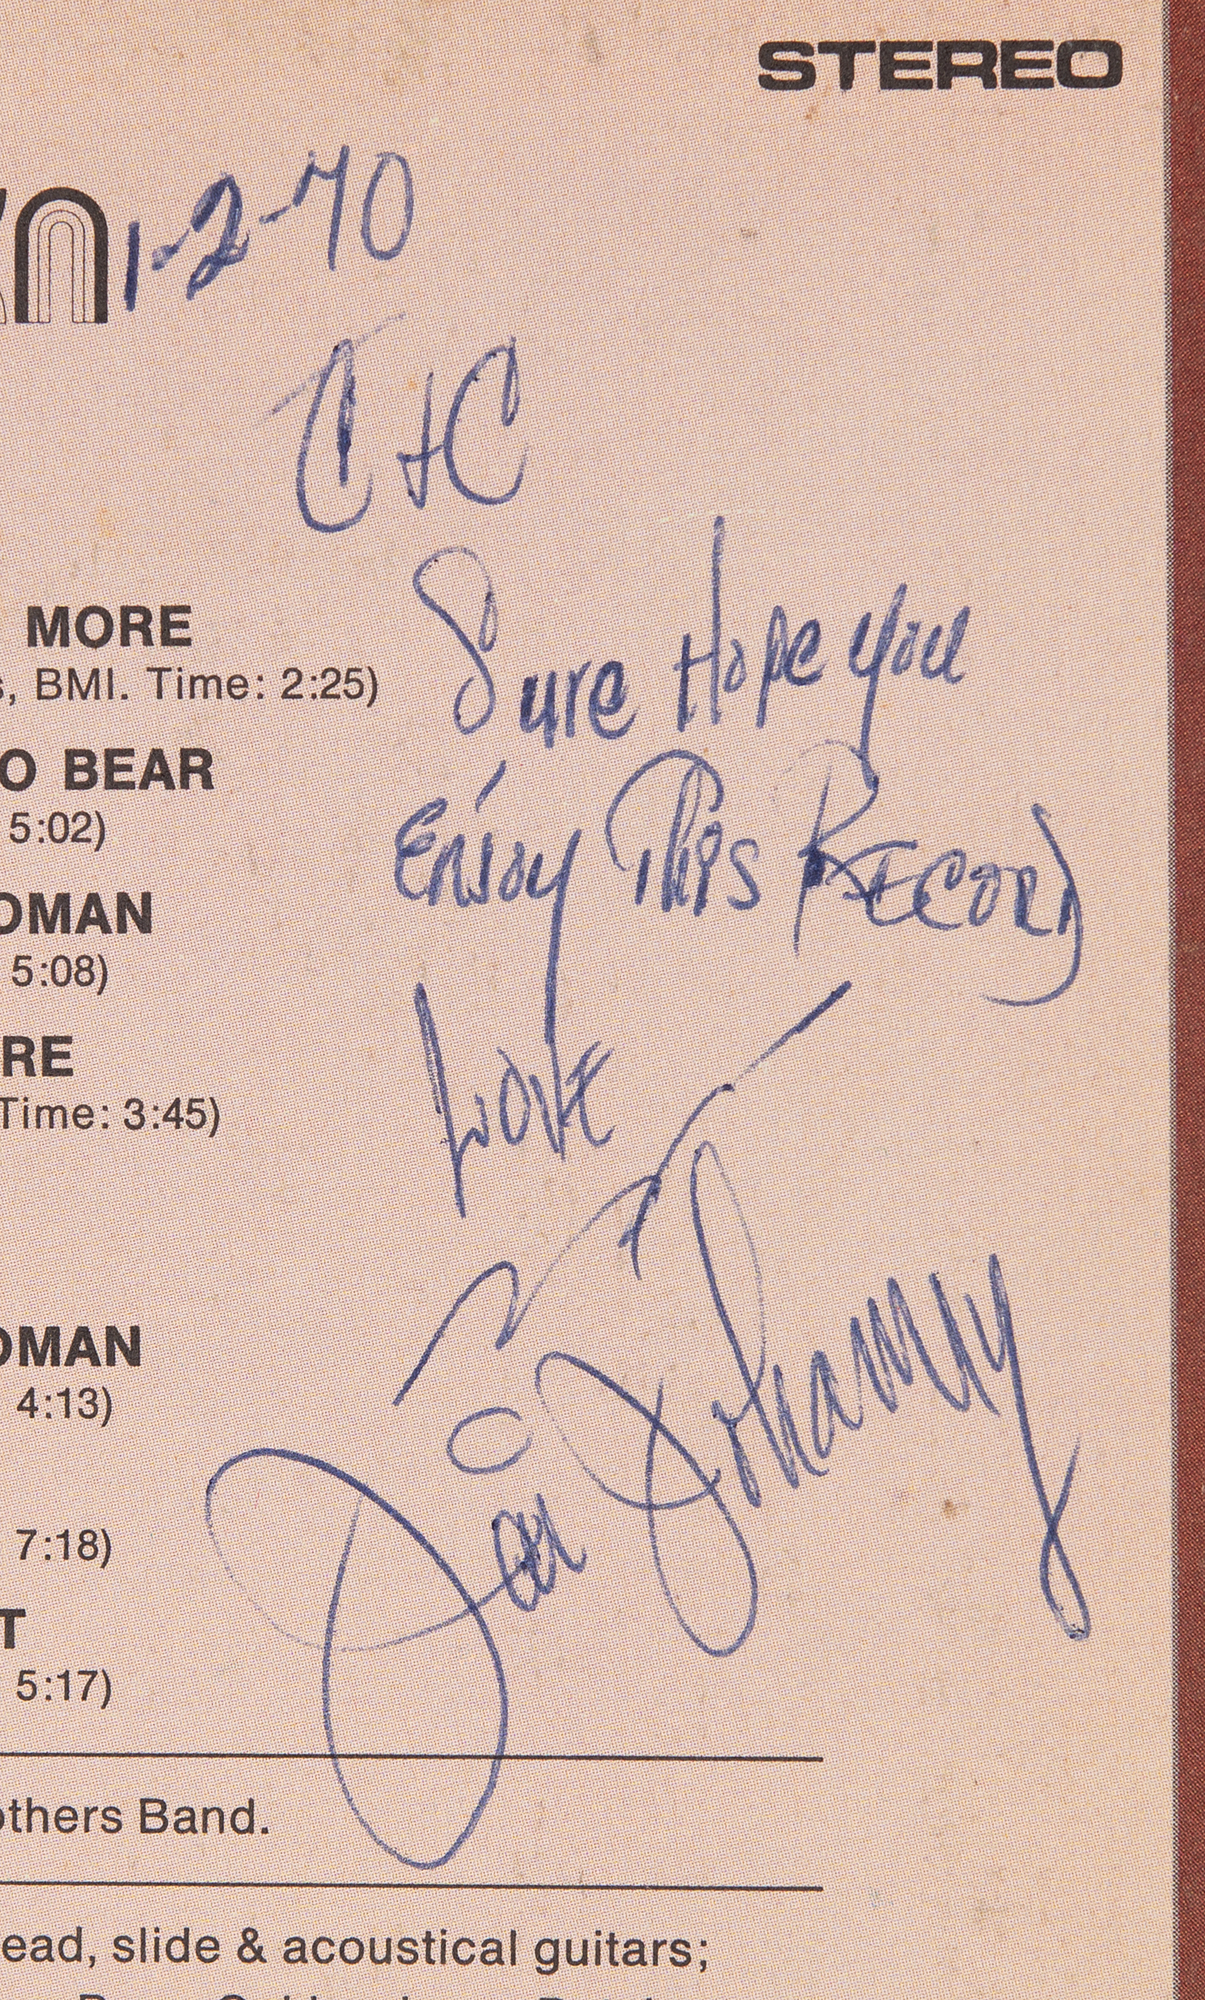 STEREO
1-2-70
C + C
MORE
BMI. Time: 2:25)
Sure Hope you
O BEAR
5:02)
Enjoy This Record
OMAN
5:08)
Love
RE
Time: 3:45)
OMAN
4:13)
Jai Johanny
7:18)
T
5:17)
others Band.
ead, slide & acoustical guitars;